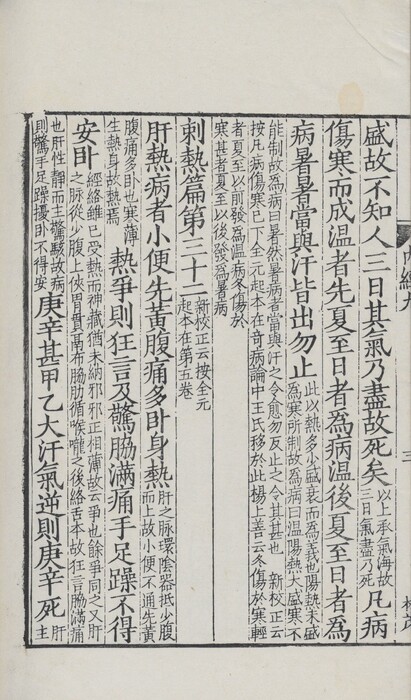 盛故不知人三日其氣乃盡故死矣以上承氣海故三日氣盡乃死凡病
傷寒而成温者先夏至日者為病温後夏至日者為
病暑暑當與汗皆出勿止此以熱多少盛衰而為義也陽熱未盛為寒所制故為病曰温陽熱大盛寒不
能制故為病曰暑然暑病者當與汗之令愈勿反止之令其甚也 新校正云按凡病傷寒已下全元起本在奇病論中王氏移於此楊上善云冬傷於寒輕
者夏至以前發為温病冬傷於寒甚者夏至以後發為暑病
刺熱篇第三十二新校正云按全元起本在第五卷
肝熱病者小便先黄腹痛多卧身熱肝之脈環陰器抵少腹而上故小便不通先黄
腹痛多卧也寒薄生熱身故熱焉熱爭則狂言及驚脇滿痛手足躁不得
安卧經絡雖已受熱而神藏猶未納邪邪正相薄故云爭也餘爭同之又肝之脈從少腹上俠胃貫鬲布脇肋循喉嚨之後絡舌本故狂言脇滿痛
也肝性靜而主驚駭故病則驚手足躁擾卧不得安庚辛甚甲乙大汗氣逆則庚辛死肝主